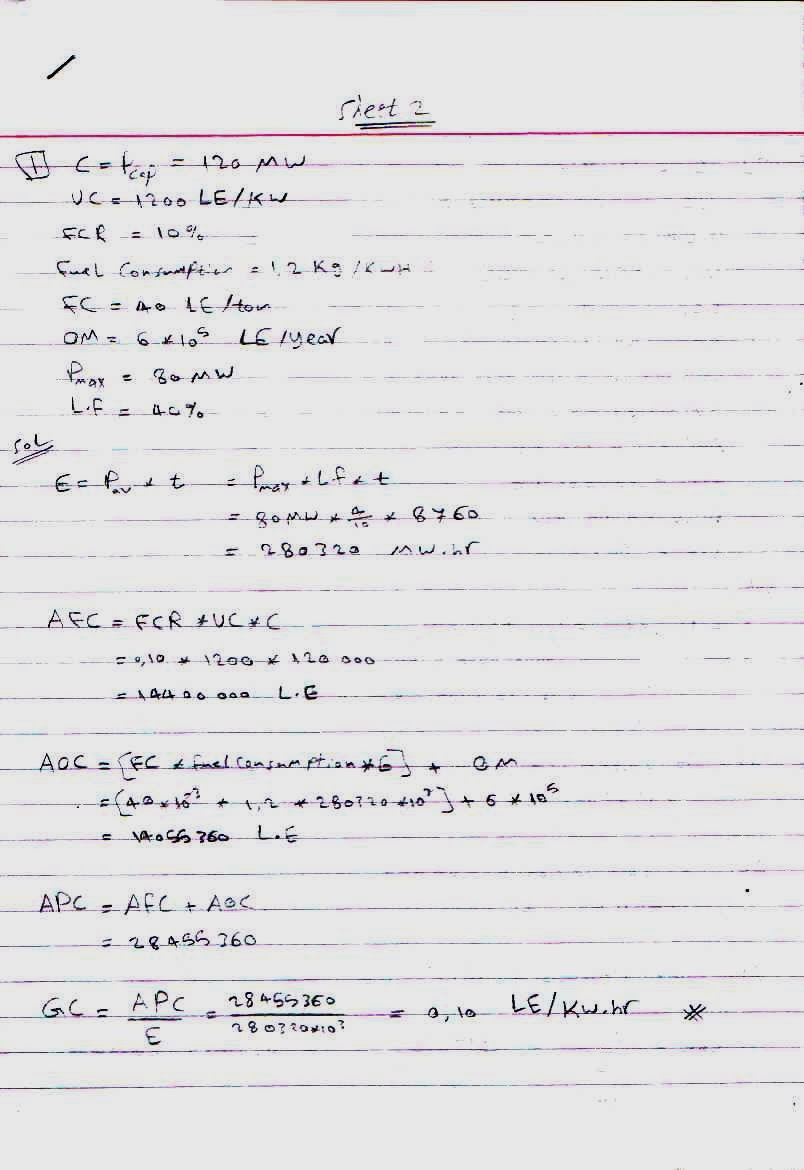 Sheet 2
1 C = Pcap = 120 MW
UC = 1200 LE/KW
FCR = 10%
Fuel Consumption = 1,2 Kg/KWH
FC = 40 LE/ton
OM = 6 * 10^5 LE/year
Pmax = 80 MW
L.F = 40%
Sol
E = Pav * t = Pmax * LF * t
= 80 MW * 4/10 * 8760
= 280320 MW.hr
AFC = FCR * UC * C
= 0,10 * 1200 * 120 000
= 14400 000 L.E
AOC = [FC * fuel consumption * E] + OM
= [40 * 10^-3 * 1,2 * 280320 * 10^3] + 6 * 10^5
= 14055360 L.E
APC = AFC + AOC
= 28455360
GC = APC/E = 28455360/280320*10^3 = 0,10 LE/Kw.hr *